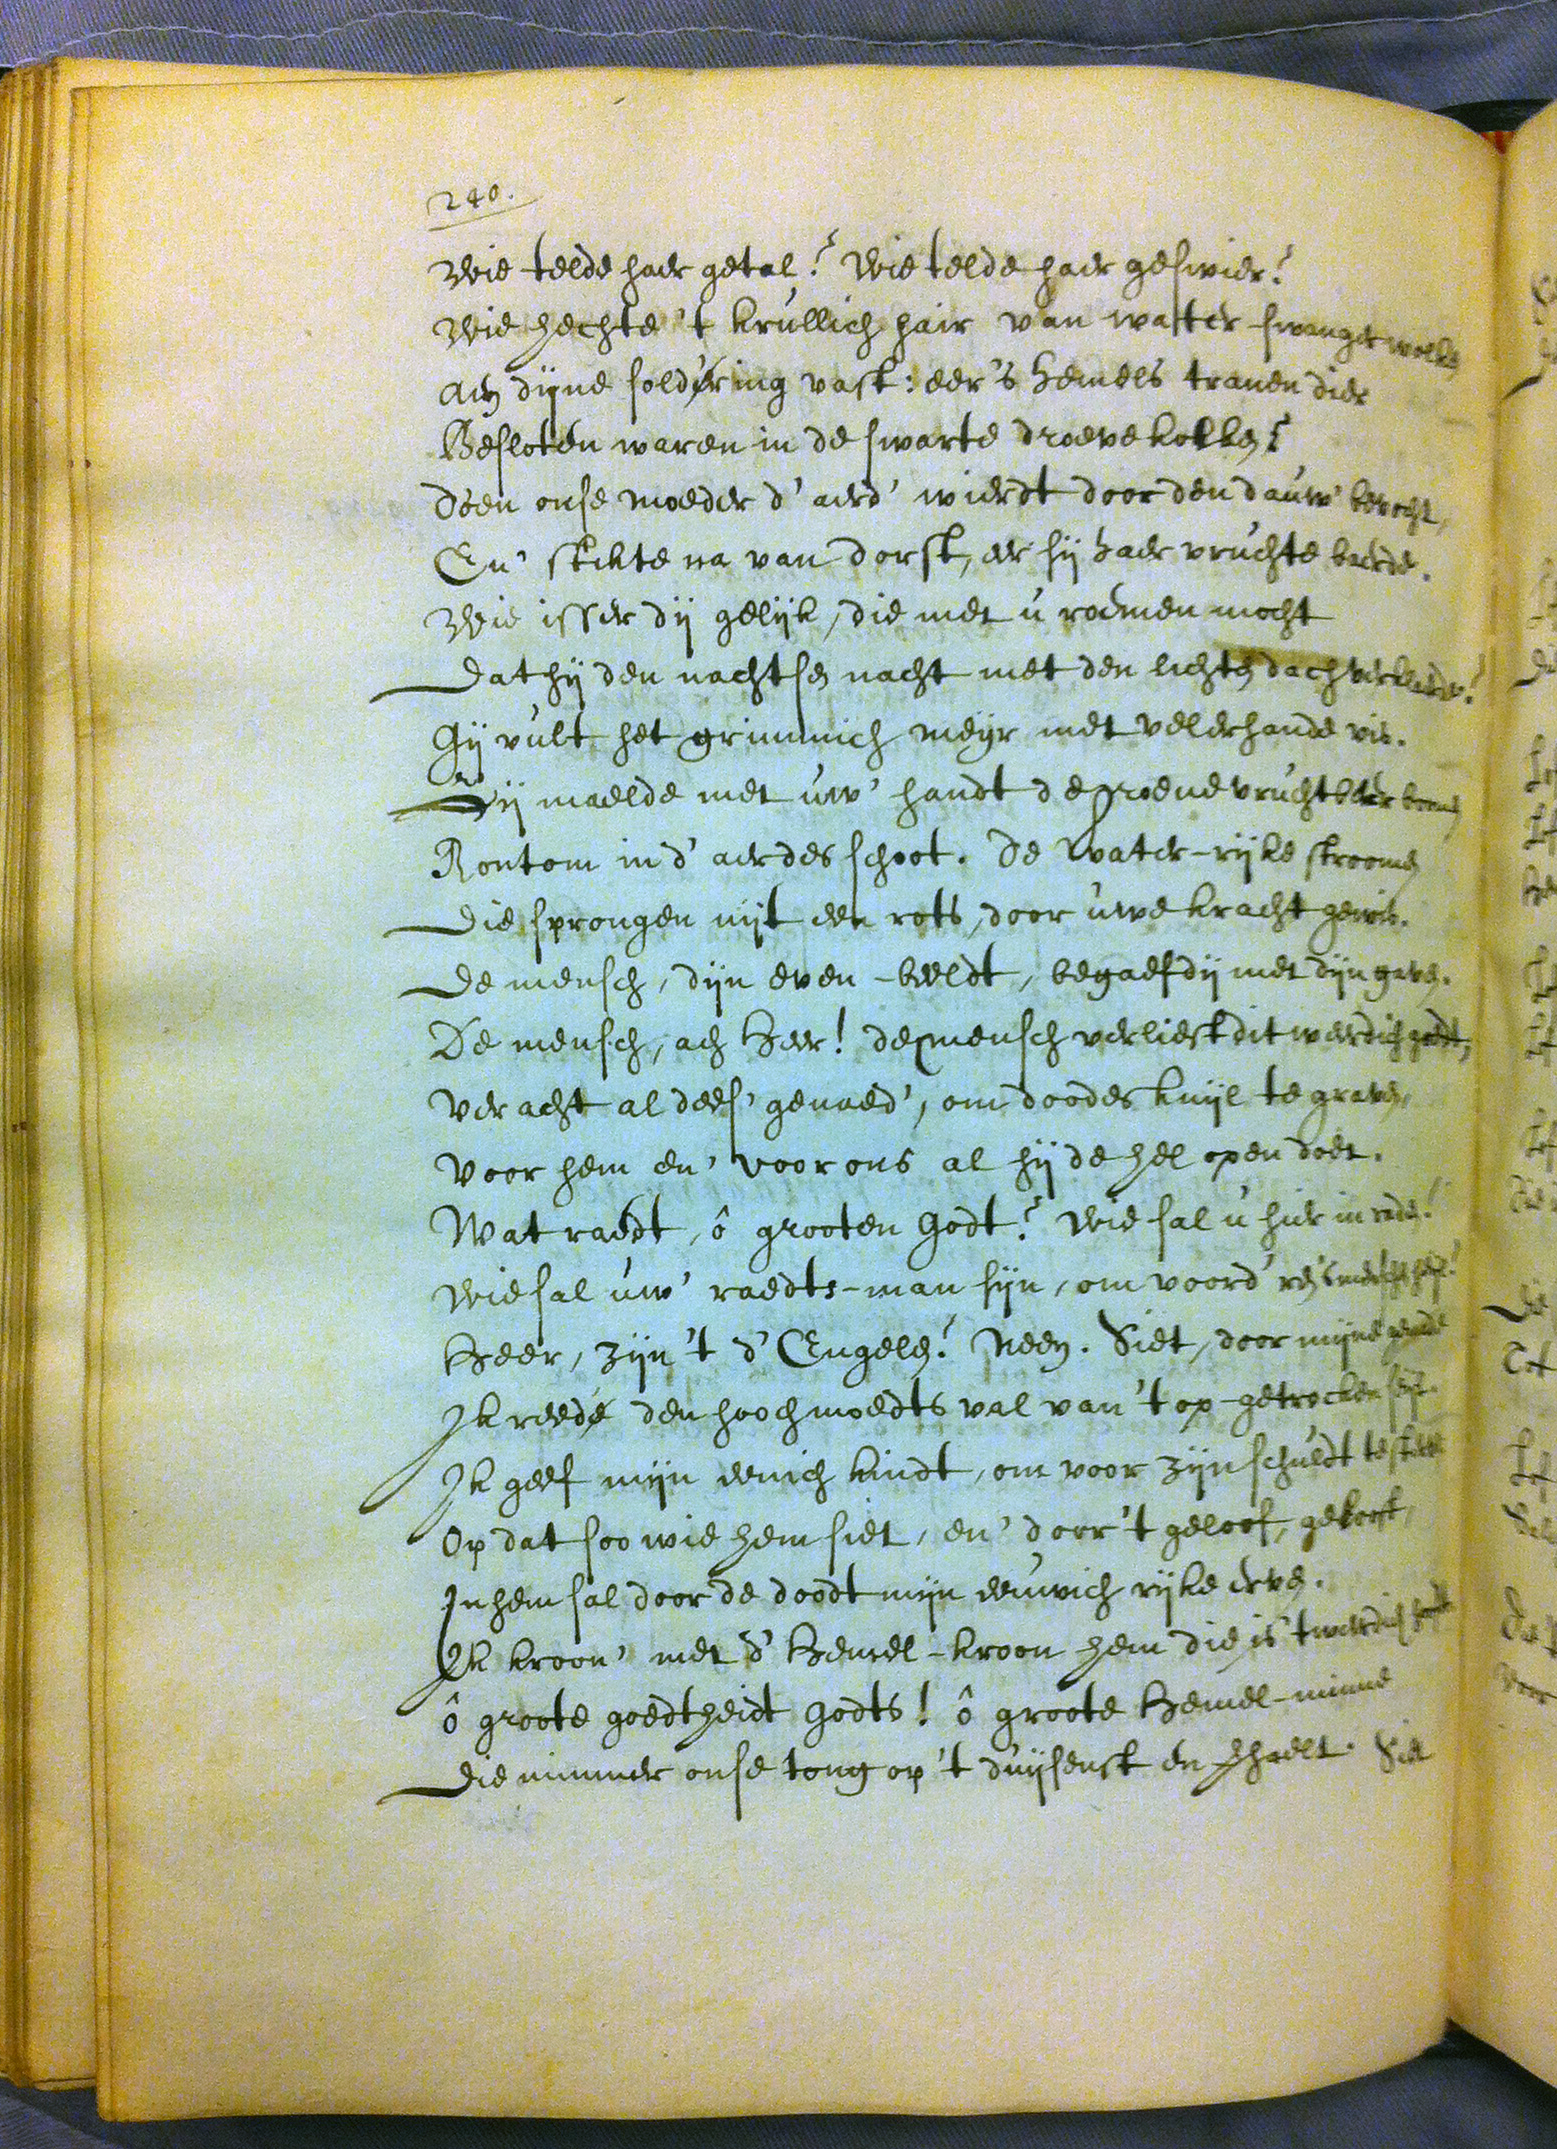 240.
Wie telde haer getal? Wie telde haer geswier?
Wie hechte 't krullich hair van watter-swanger wolken
Aen dijne soldering vast: eer 's hemels tranen dier
Besloten waren in de swarte droeve kolken?
Doen onse moeder d' aerd' wierdt door den dauw' bevocht,
En' stikte na van dorst, eer sij haer vruchte baerde.
Wie isser dij gelijk, die met u roemen mocht
Dat hij den nachtsen nacht met den lichten dach verklaerde?
Gij vult het grimmich meyr met velerhande vis.
Dij maelde met uw' handt de groene vruchtbaer boomen
Rontom in d' aerdes schoot. De water-rijke stroomen
Die sprongen uijt een rots, door uwe kracht gewis.
De mensch, dijn even-beeldt, begaefdij met dijn gaven.
De mensch, ach Heer! de mensch verliest dit waerdich goedt,
Veracht al dees' genaed', om doodes kuijl te graven,
Voor hem en' voor ons al hij de hel open doet.
Wat raedt, ô grooten Godt? Wie sal u hier in raden?
Wie sal uw' raedts-man sijn, om voord'ren 's menschen heijl?
Heer, zijn 't d' Engelen? Neen. Siet, door mijne genade
Ik reede den hoochmoedts val van 't op-getrocken seijl.
Ik geef mijn eenich kindt, om voor zijn schuldt te sterven
Op dat soo wie hem siet, en' door 't geloof, gelooft,
In hem sal door de doodt mijn eeuwich rijke erven.
Ik kroon' met d' Hemel-kroon hem die is 't waerdich hooft.
ô groote goedtheidt Godts! ô groote Hemel-minne
Die nimmer onse tong op 't duijsenst en verhaelt. Siet